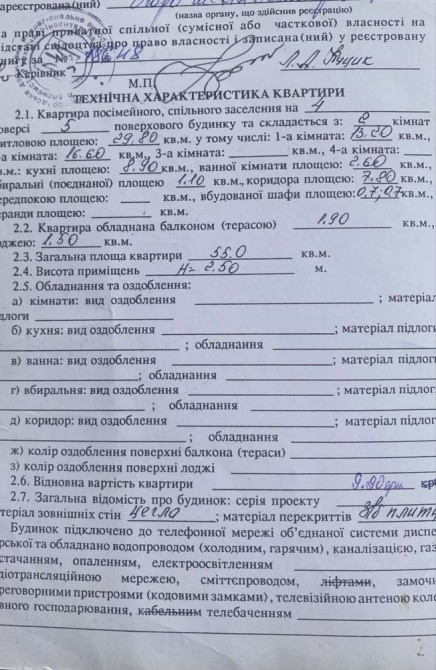 ареєстрована(ний)
(назва органу, що здійснив реєстрацію)
а праві приватної спільної (сумісної або часткової) власності на
ідставі свідоцтва про право власності і записана(ний) у реєстрову
нигу за №
Керівник
М.П.
ТЕХНІЧНА ХАРАКТЕРИСТИКА КВАРТИРИ
2.1. Квартира посімейного, спільного заселення на 4
оверсі 5 поверхового будинку та складається з: 2 кімнат
итловою площею: 29.80 кв.м. у тому числі: 1-а кімната: 13.20 кв.м.,
-а кімната: 16.60 кв.м., 3-а кімната: кв.м., 4-а кімната:
в.м.: кухні площею: 8.90 кв.м., ванної кімнати площею: 2.60 кв.м.,
биральні (поєднаної) площею 1.10 кв.м., коридора площею: 7.80 кв.м.,
ередпокою площею: кв.м., вбудованої шафи площею: 0,7; 0,7 кв.м.,
еранди площею: кв.м.
2.2. Квартира обладнана балконом (терасою) 1.90 кв.м.,
оджею: 1.50 кв.м.
2.3. Загальна площа квартири 55.0 кв.м.
2.4. Висота приміщень H= 2.50 м.
2.5. Обладнання та оздоблення:
а) кімнати: вид оздоблення ; матеріал
ідлоги
б) кухня: вид оздоблення ; матеріал підлоги
; обладнання
в) ванна: вид оздоблення ; матеріал підлоги
; обладнання
г) вбиральня: вид оздоблення ; матеріал підлоги
; обладнання
д) коридор: вид оздоблення ; матеріал підлоги
; обладнання
ж) колір оздоблення поверхні балкона (тераси)
з) колір оздоблення поверхні лоджі
2.6. Відновна вартість квартири
2.7. Загальна відомість про будинок: серія проекту
теріал зовнішніх стін цегла ; матеріал перекриттів з/б плити
Будинок підключено до телефонної мережі об'єднаної системи диспе
рської та обладнано водопроводом (холодним, гарячим), каналізацією, газ
стачанням, опаленням, електроосвітленням
діотрансляційною мережею, сміттєпроводом, ліфтами, замочн
реговорними пристроями (кодовими замками), телевізійною антеною коле
вного господарювання, кабельним телебаченням